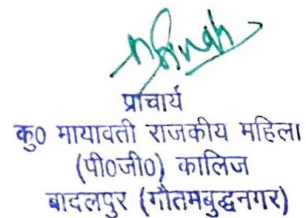 प्राचार्य
कु० मायावती राजकीय महिला
(पी०जी०) कालिज
बादलपुर (गौतमबुद्धनगर)